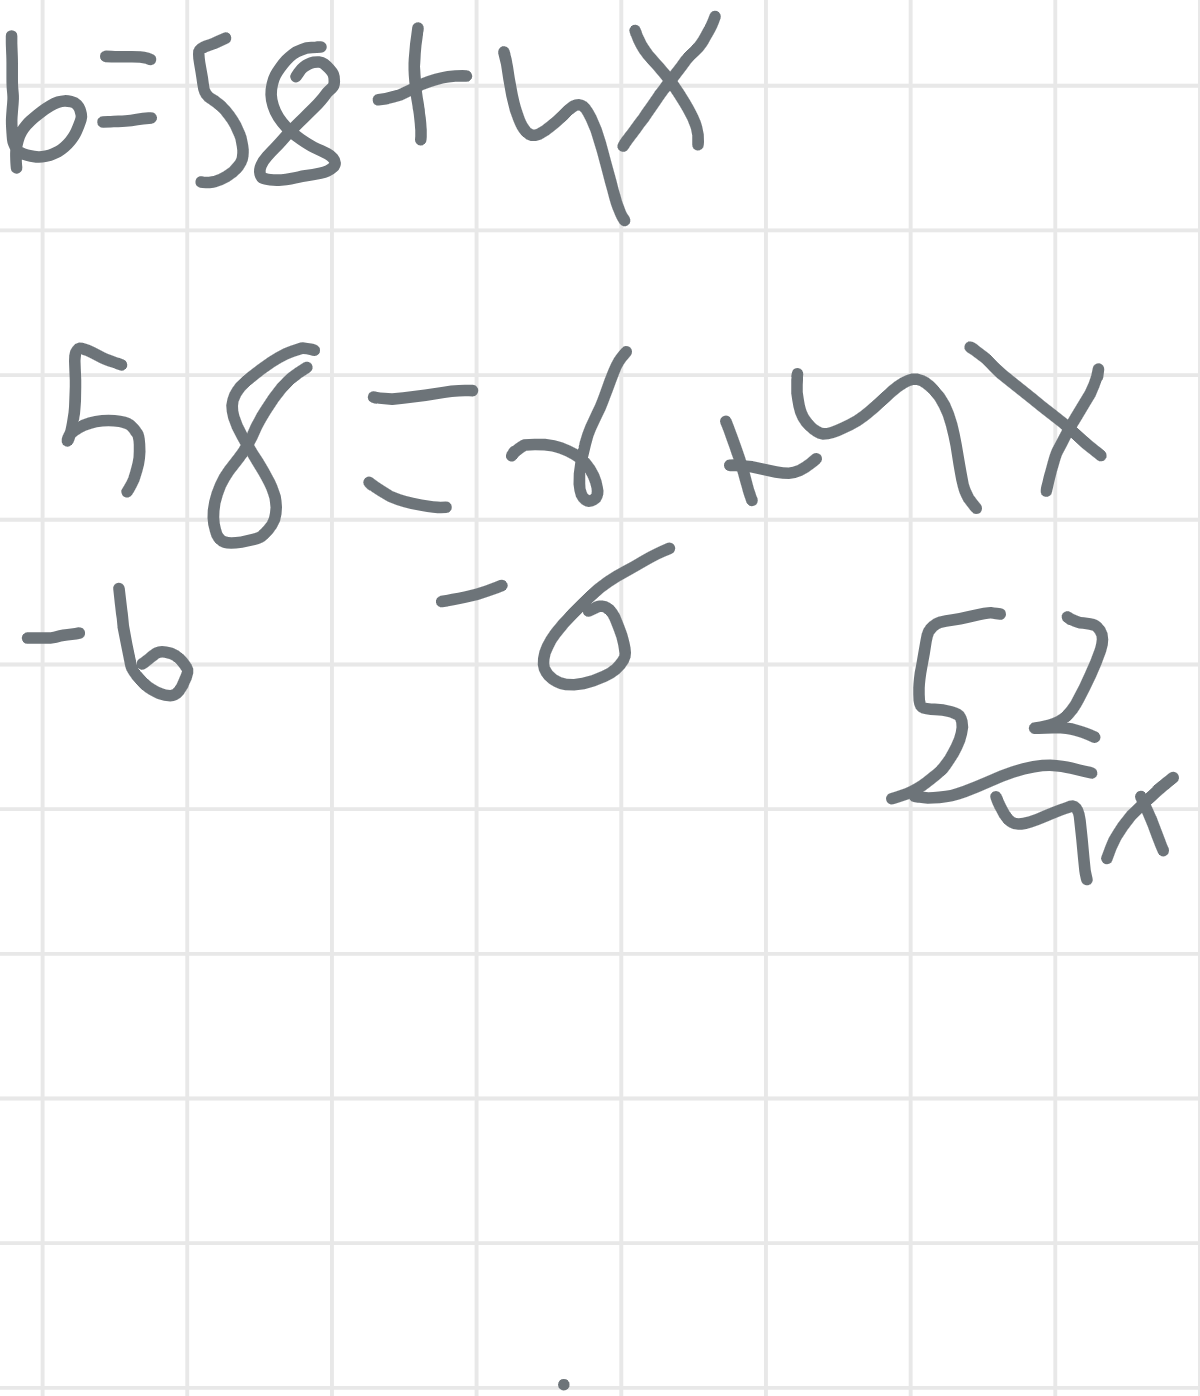 6=58+4x
58=6+4x
-6 -6
52
4x